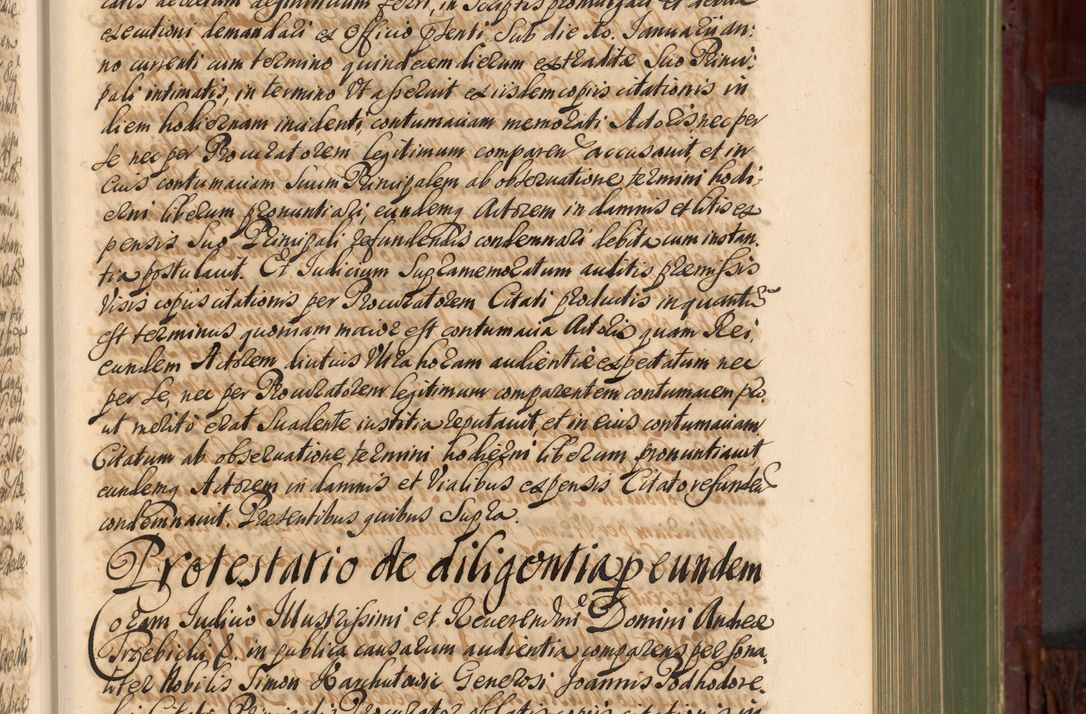 executioni demandari ex Officio pśenti, Sub die Xo. Januarii an:
no currenti cum termino quindecem dierum extraditæ Suo Princi:
pali intimatis, in termino Ut asseruit ex iisdem copiis citationis in
diem hodiernam incidenti, contumaciam memorati Actoris nec per
se nec per Procuratorem legitimum comparen accusavit, et in
eius contumaciam Suum Principalem ab observatione termini hodi:
erni liberum pronuntiari, eundemq Actorem in damnis et litis ex
pensis Suo Principali refundendis condemnari debita cum instan
tia postulavit. Et Judicium Supramemoratum auditis præmissis
Visis copiis citationis per Procuratorem Citati productis in quantū
est terminus quoniam maior est contumacia Actoris quam Rei,
eundem Actorem diutius Ultra horam audientiæ expectatum nec
per Se, nec per Procuratorem legitimum comparentem contumacem pro
ut merito erat Suadente iustitia reputavit, et in eius contumaciam
Citatum ab observatione termini hodierni liberum pronuntiavit,
eundemq Actorem in damnis et Vialibus expensis Citato refunden
condemnavit. Præsentibus quibus Supra.
Protestatio de diligentia p eundem
Coram Judicio Illustrissimi et Reverendmi Domini Andreæ
Trzebicki & in publica causarum audientia comparens persona
liter Nobilis Simon Generosi Joannis Podhodore